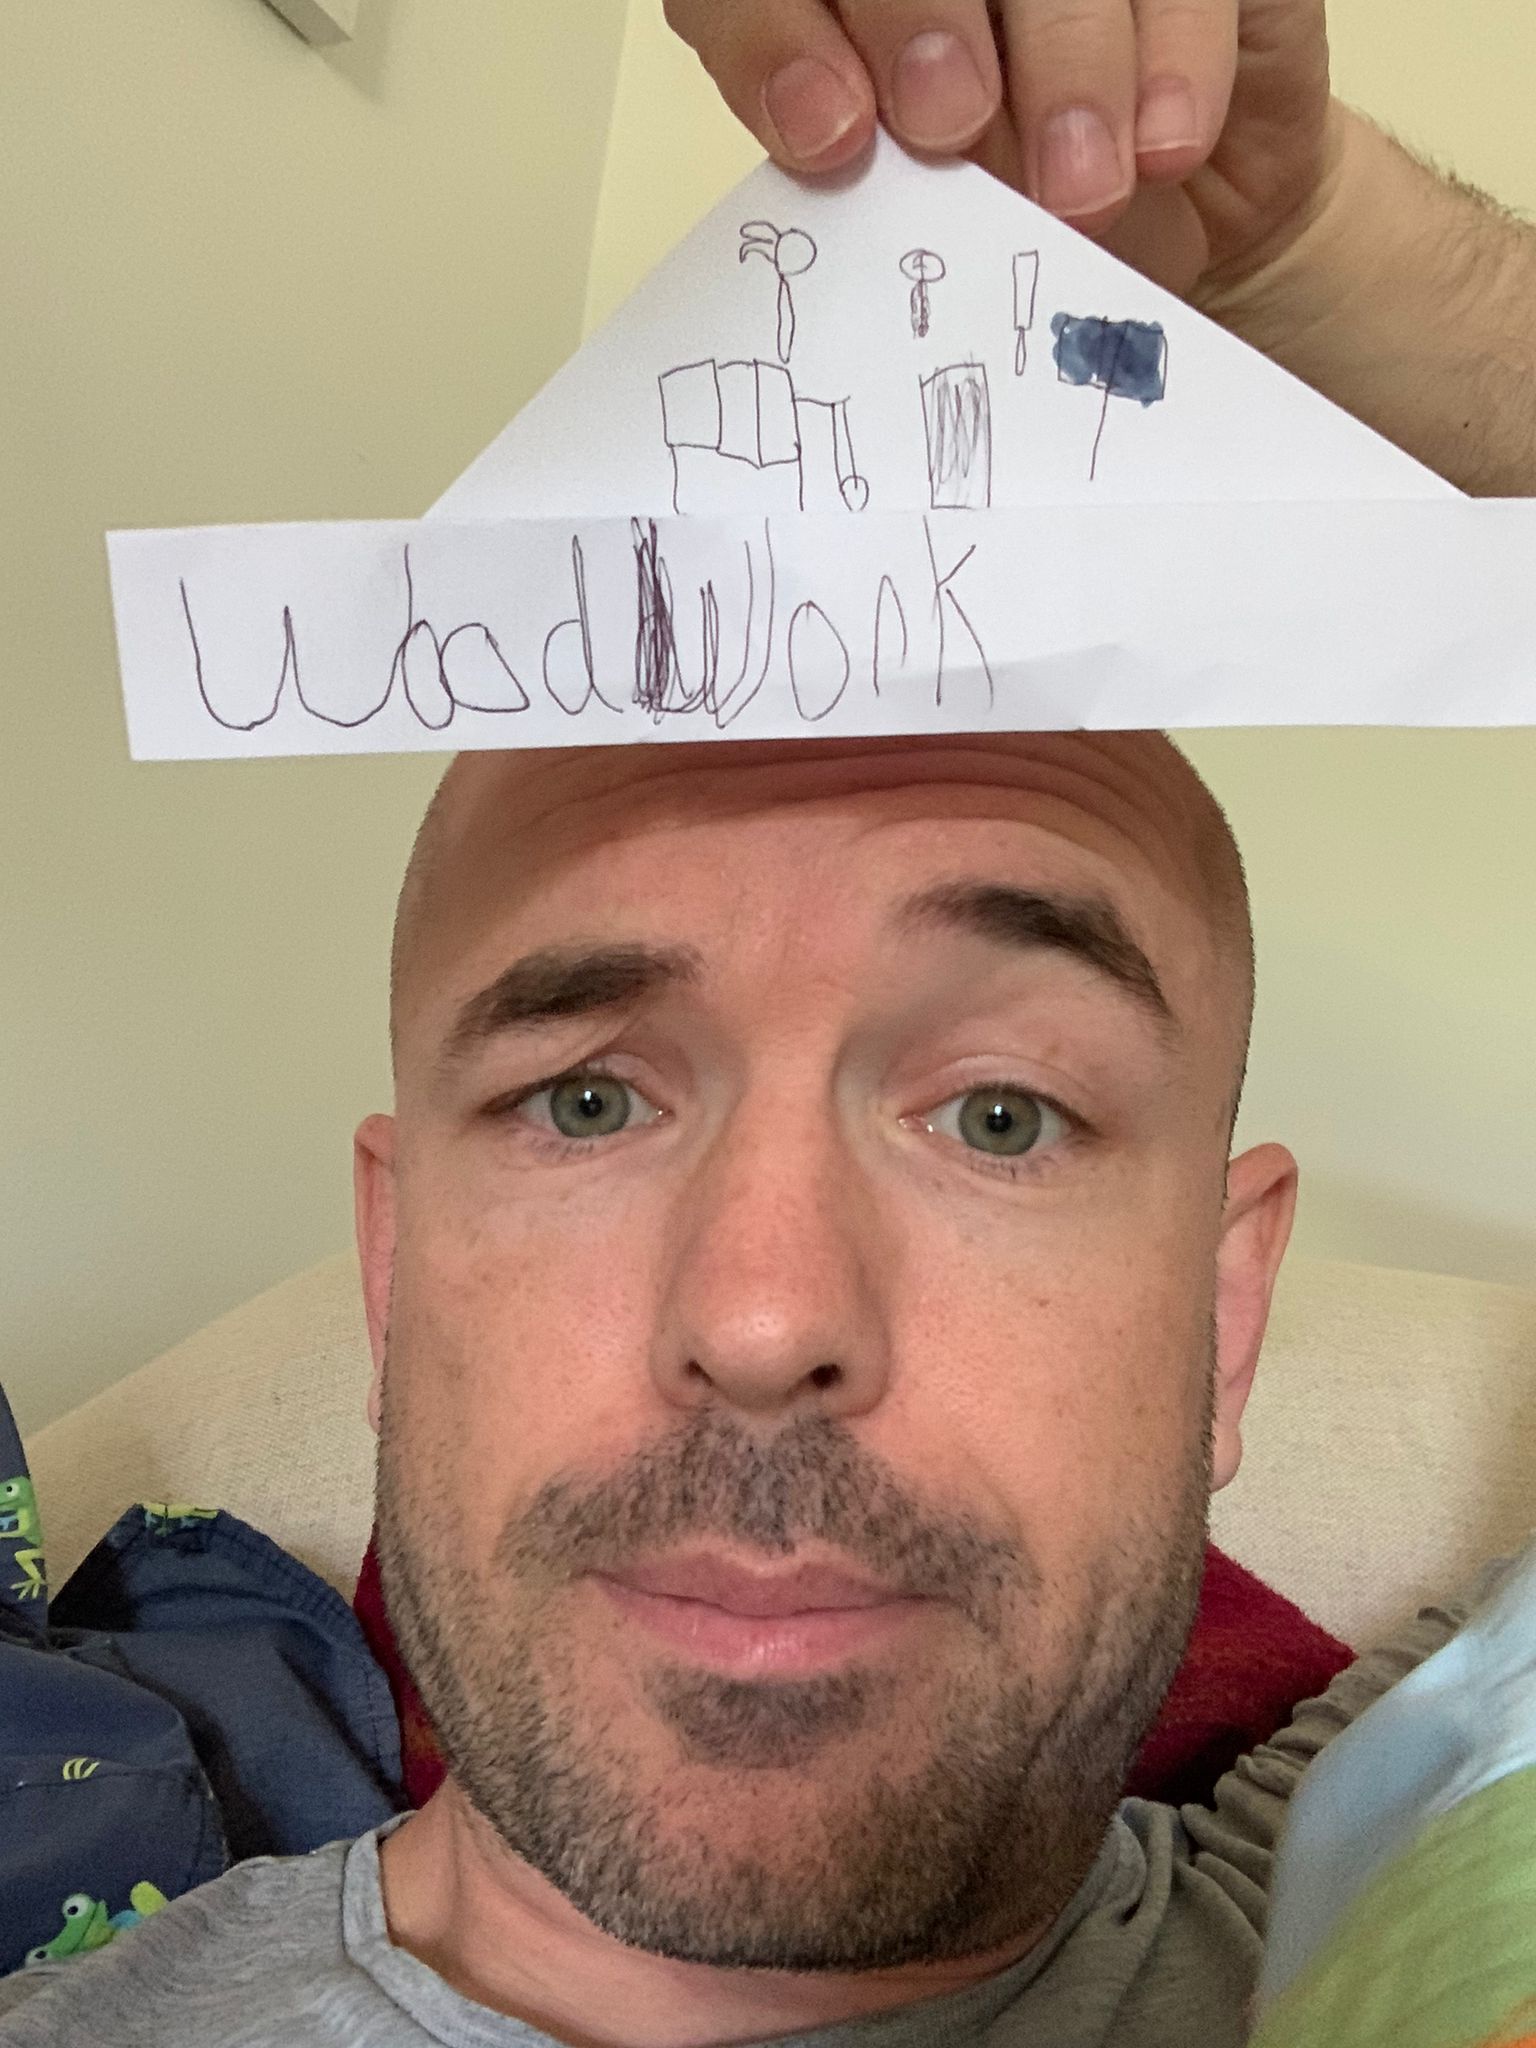 Wood Work